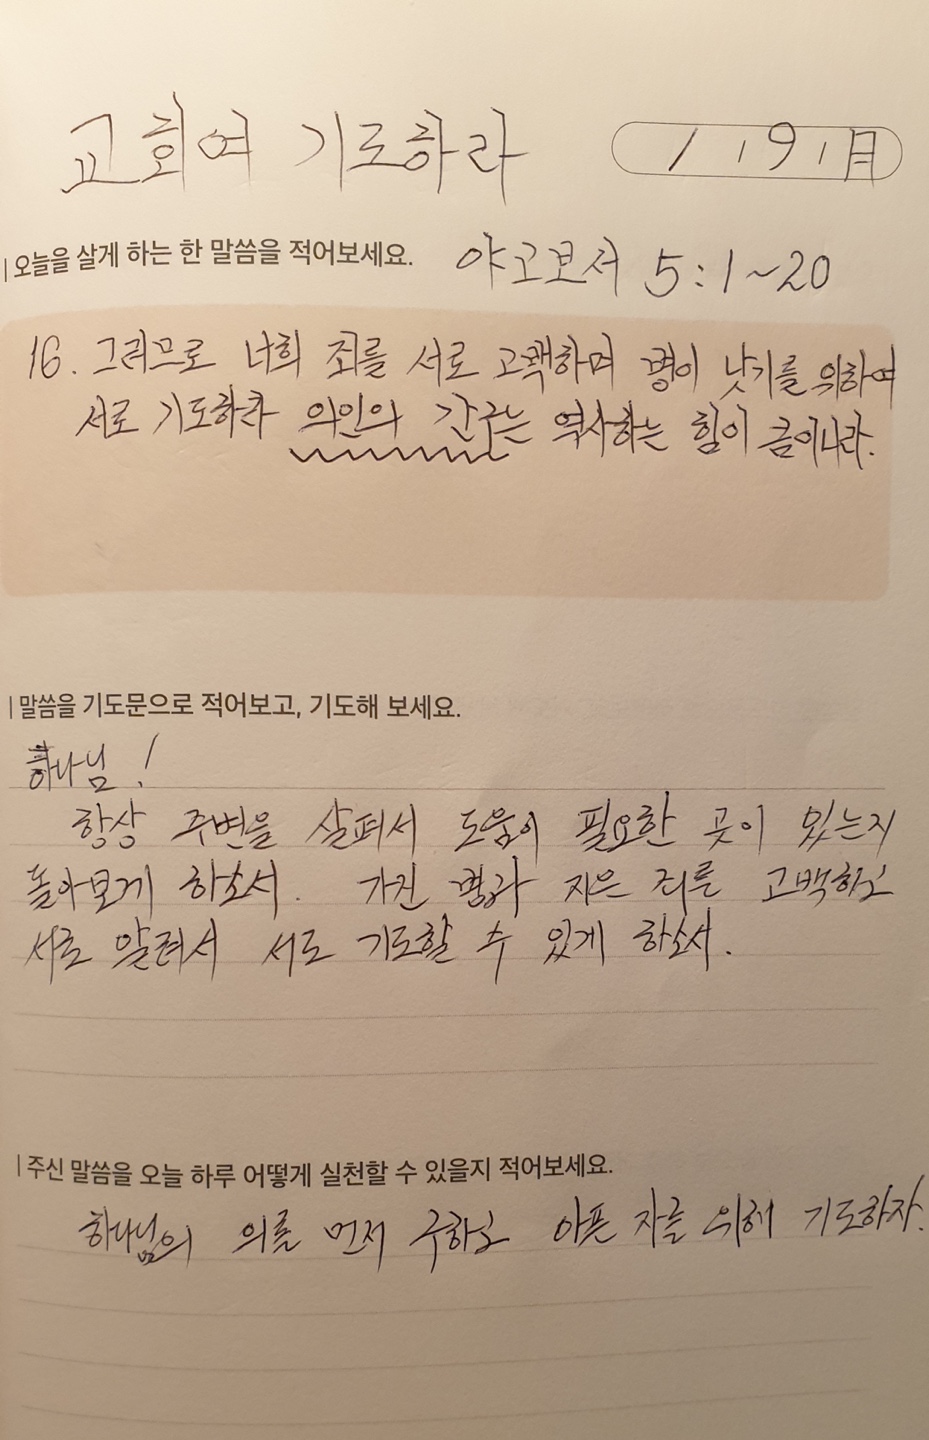 교회여 기도하라
1 / 9 / 日
| 오늘을 살게 하는 한 말씀을 적어보세요.
야고보서 5:1~20
16. 그러므로 너희 죄를 서로 고백하며 병이 낫기를 위하여
서로 기도하라 의인의 간구는 역사하는 힘이 큼이니라.
| 말씀을 기도문으로 적어보고, 기도해 보세요.
하나님!
항상 주변을 살펴서 도움이 필요한 곳이 있는지
돌아보게 하소서. 가진 병과 지은 죄를 고백하고
서로 알려서 서로 기도할 수 있게 하소서.
| 주신 말씀을 오늘 하루 어떻게 실천할 수 있을지 적어보세요.
하나님의 의를 먼저 구하고 아픈 자를 위해 기도하자.